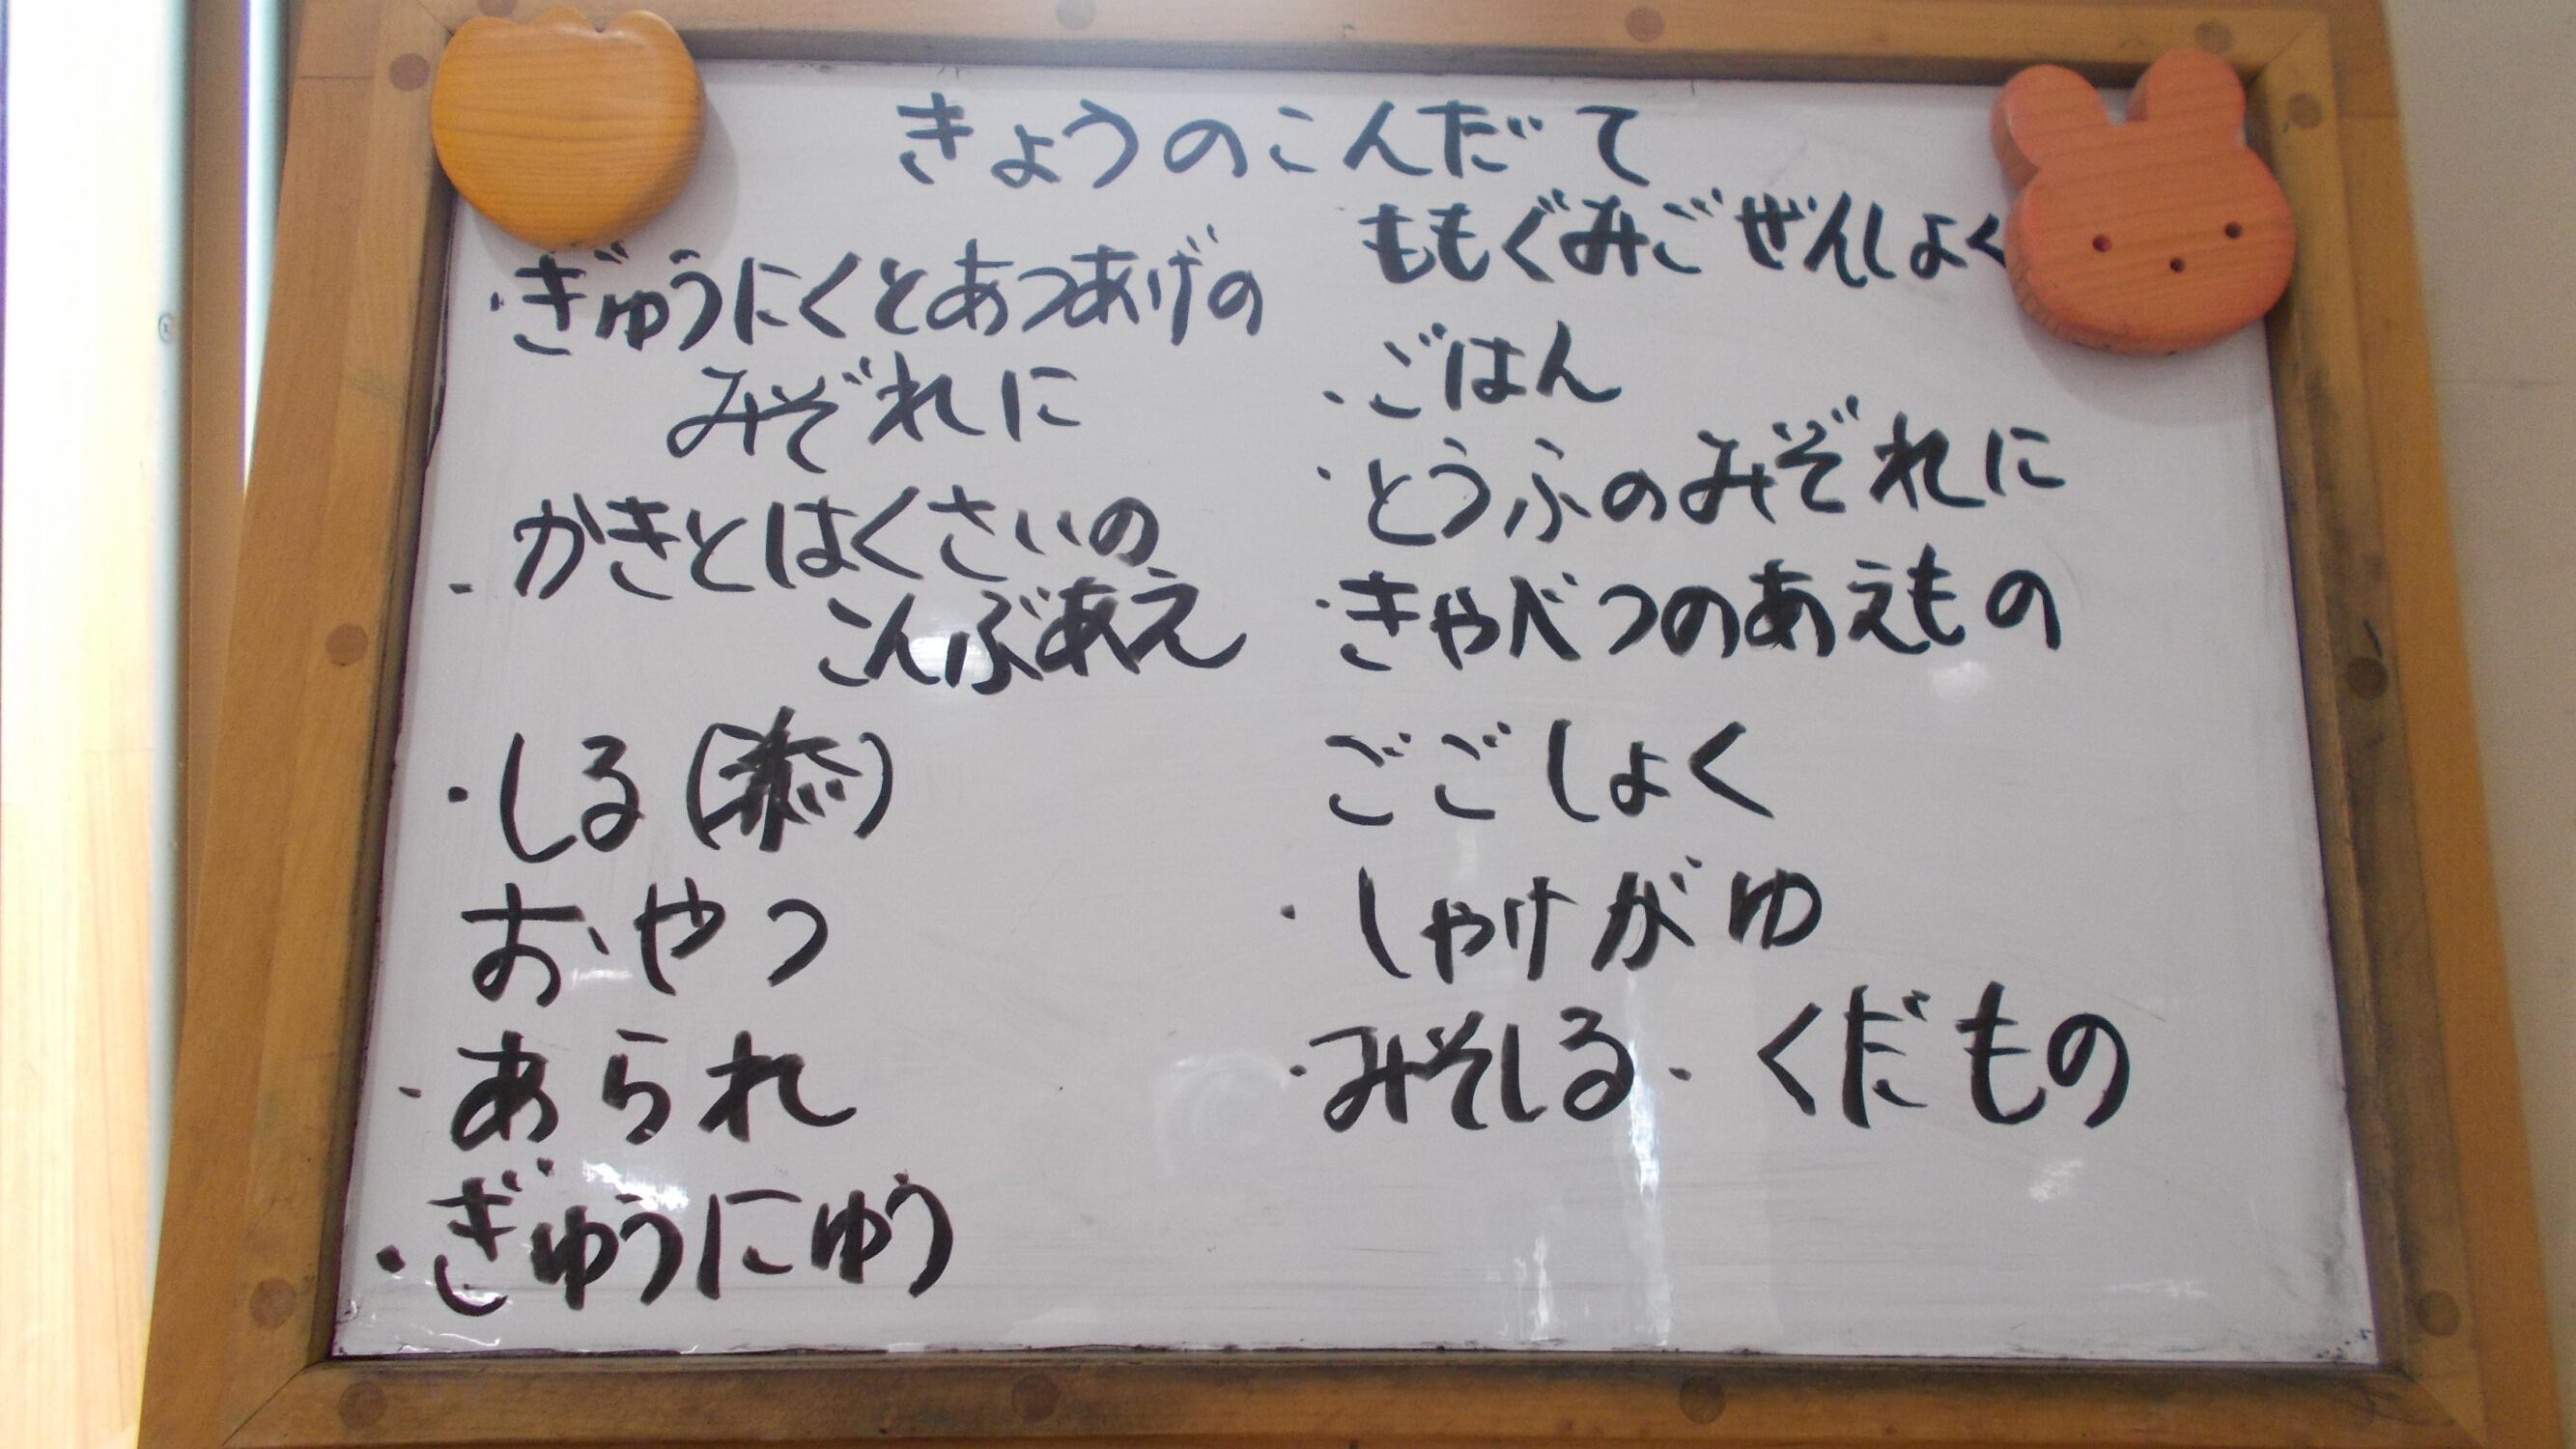 きょうのこんだて
・ぎゅうにくとあつあげの
みぞれに
・かきとはくさいの
こんぶあえ
・しる()
おやつ
・あられ
・ぎゅうにゅう
ももぐみごぜんしょく
・ごはん
・とうふのみぞれに
・きゃべつのあえもの
ごごしょく
・しゃけがゆ
・みそしる・くだもの